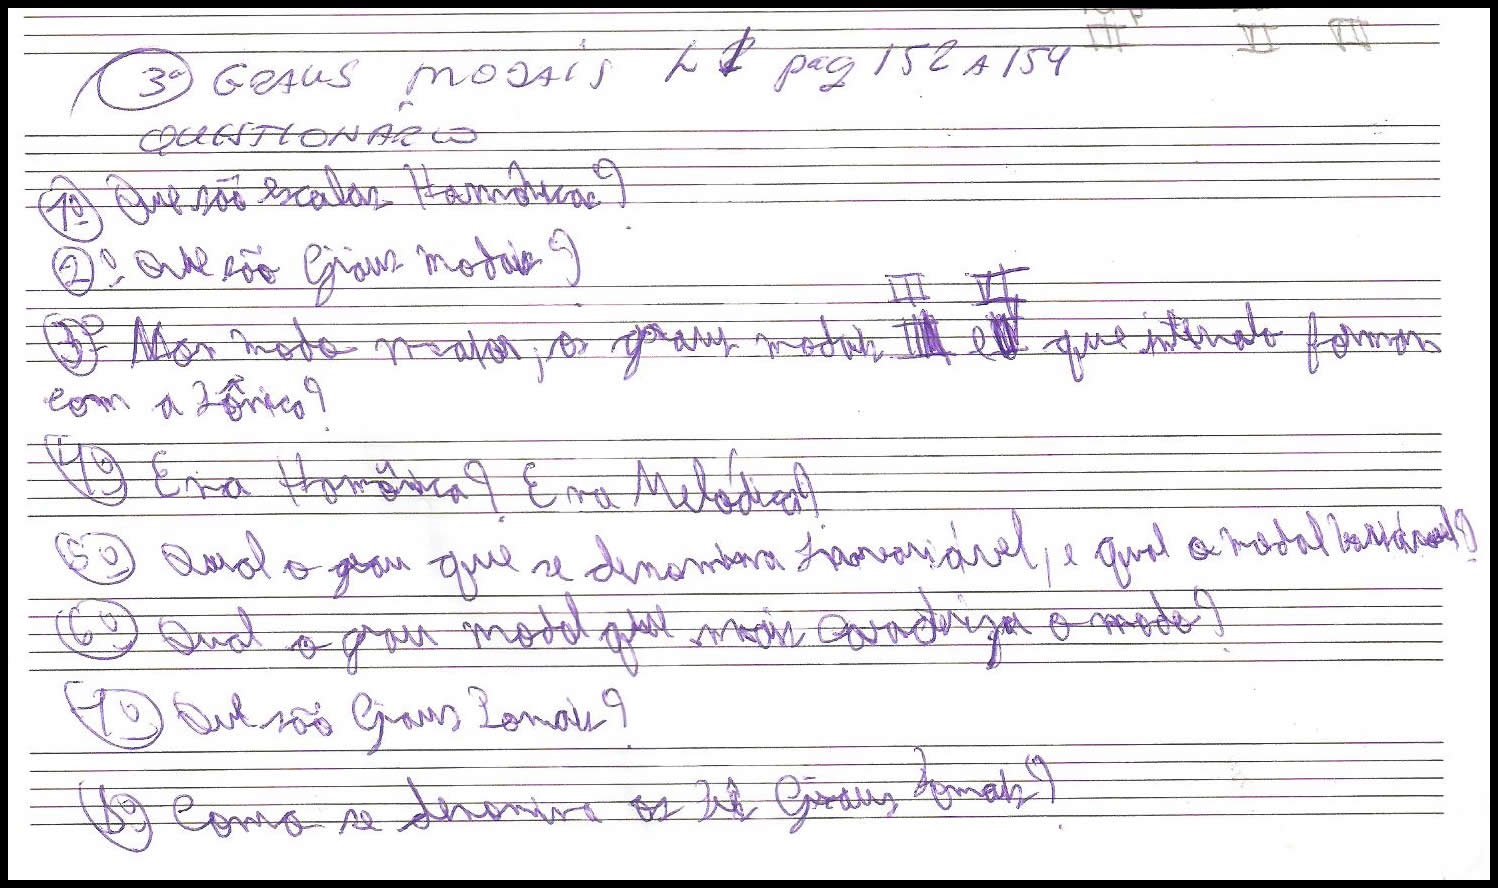 3º GRAUS MODAIS L1 pag 152 A 154
QUESTIONARIO
1º Que são escalas Harmônicas?
2º Que são Graus modais?
III VI
3º Nos modo maior, os graus modais e que intervalo formam
com a Tônica?
4º E na Harmônica? E na Melódica?
5º Qual o grau que se denomina Invariável, e qual o modal Variável?
6º Qual o grau modal que mais caracteriza o modo?
7º Que são Graus Tonais?
8º Como se denomina os Graus Tonais?